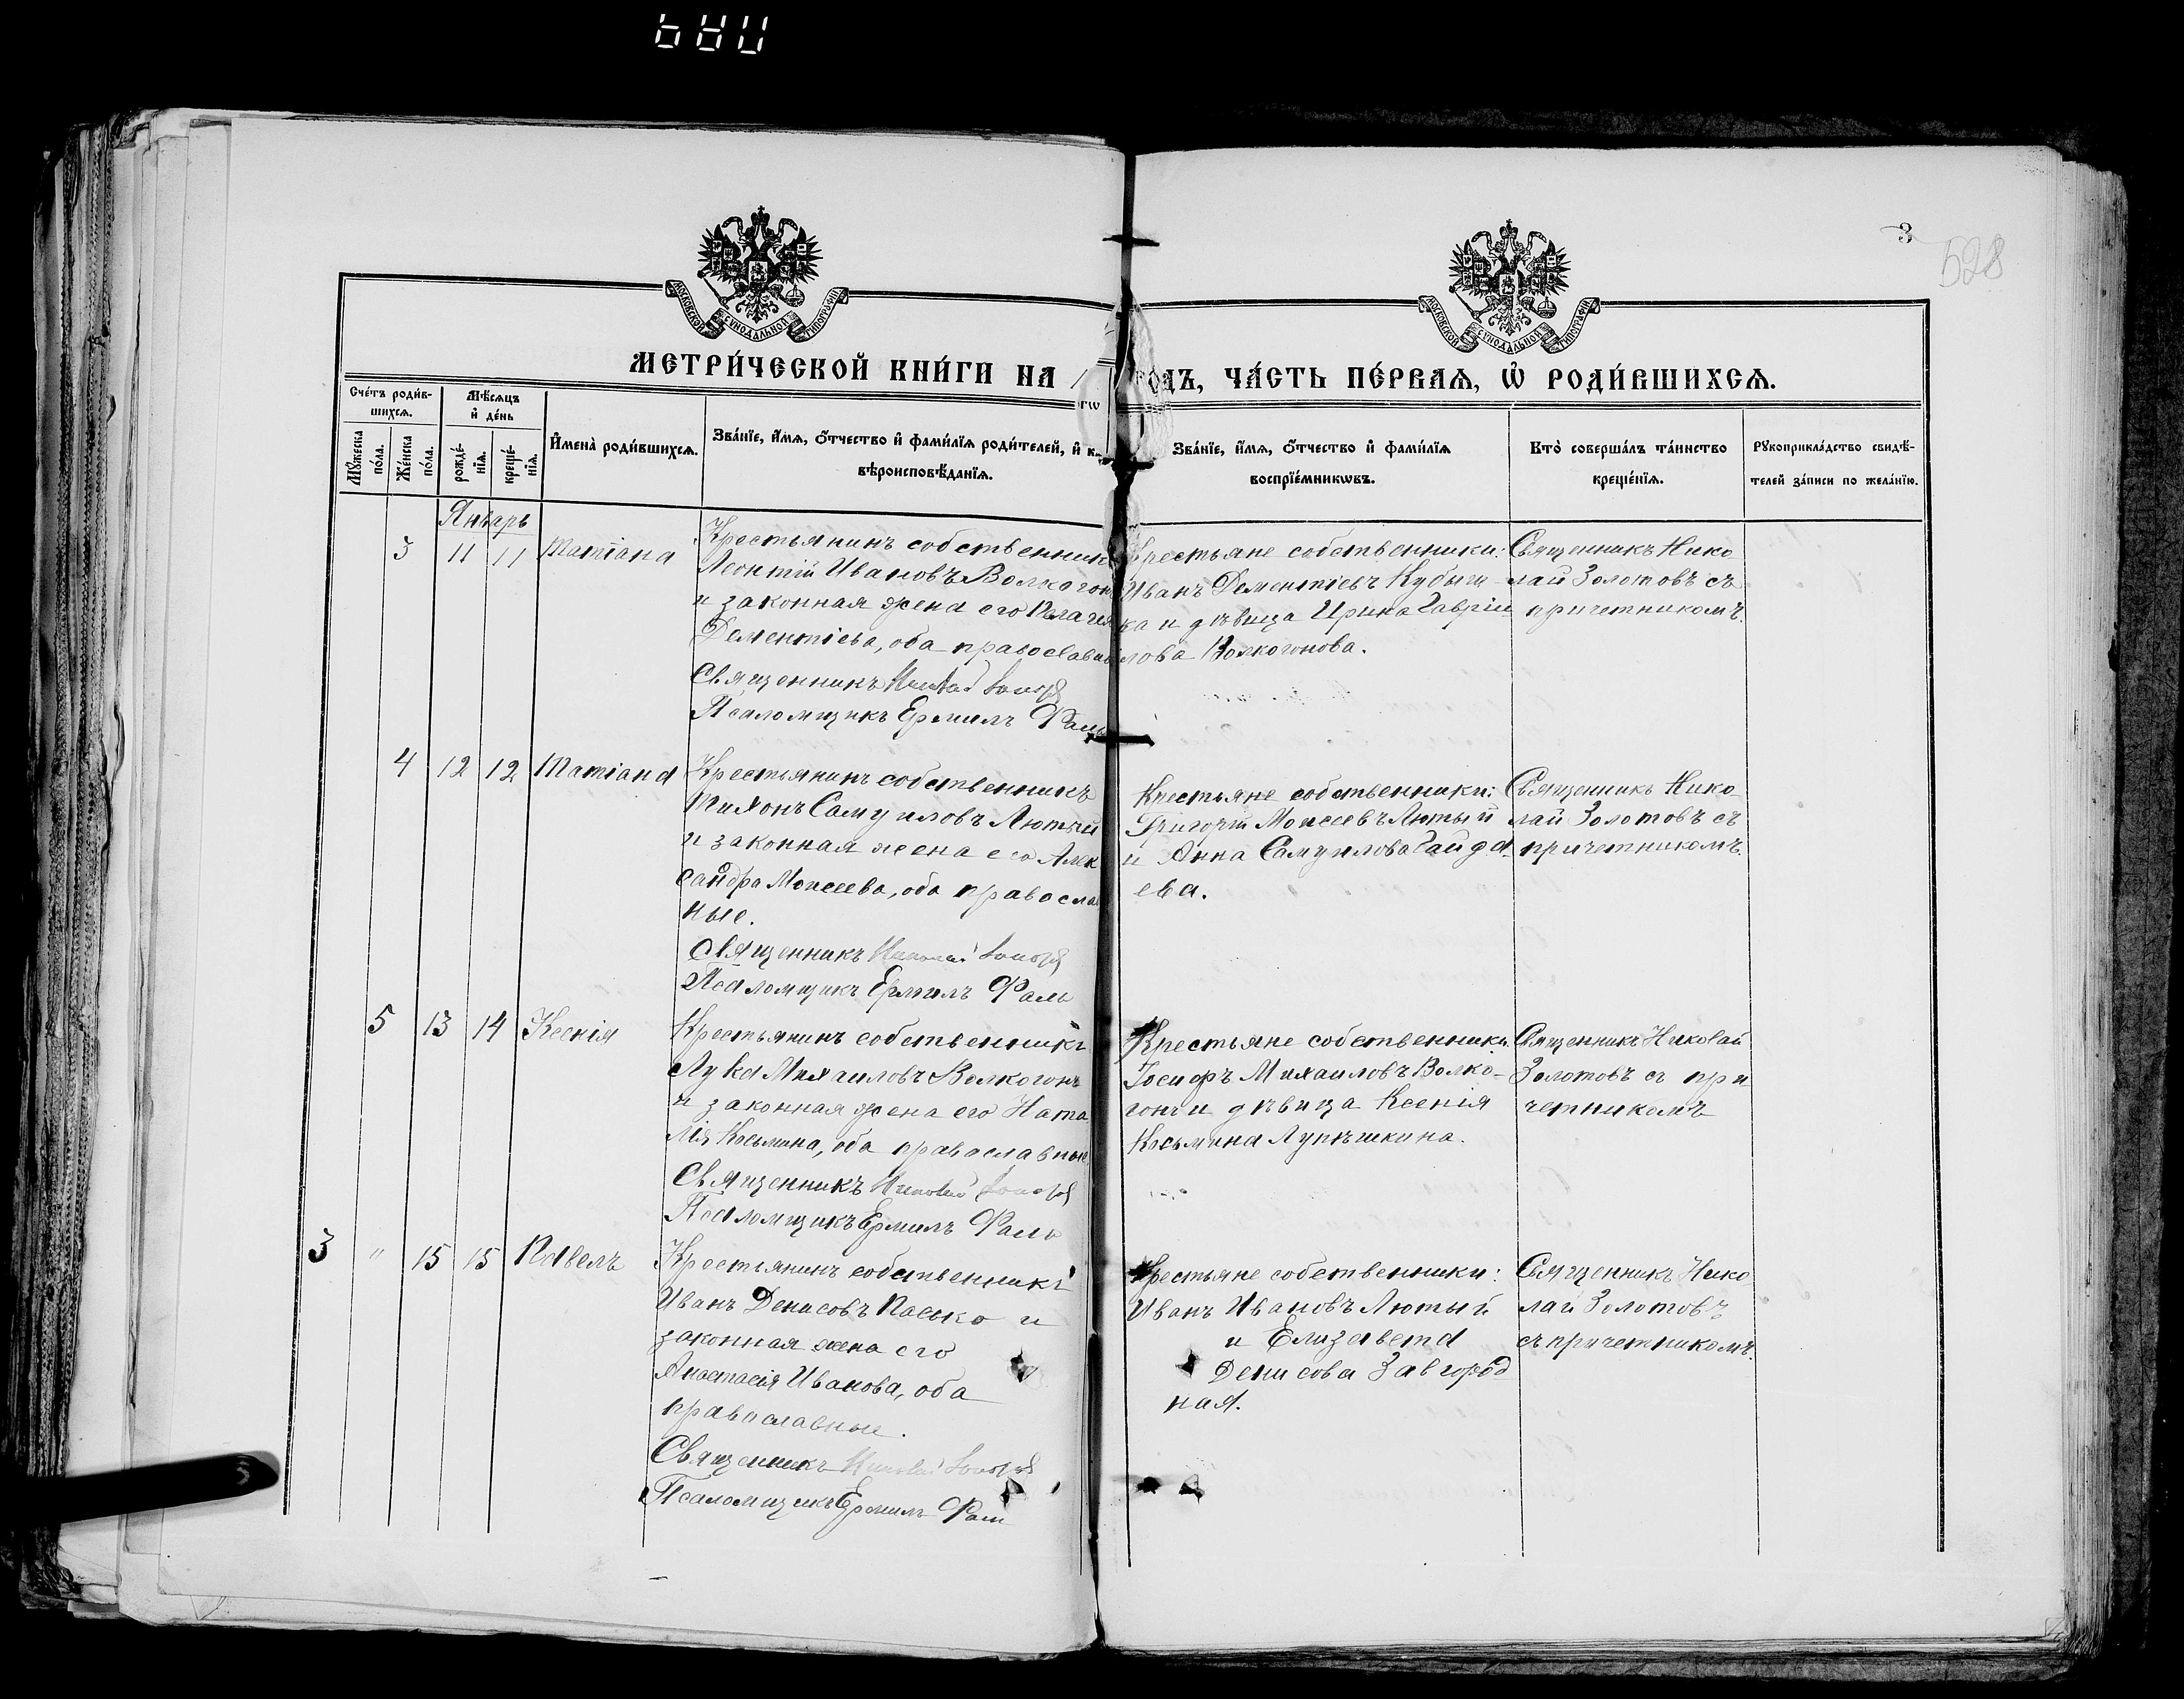 3
528
МОСКОВСКОЙ СѴНОДАЛЬНОЙ ТИПОГРАФІИ
МОСКОВСКОЙ СѴНОДАЛЬНОЙ ТИПОГРАФІИ
МЕТРИ́ЧЕСКОЙ КНИ́ГИ НА 1
ГО́ДЪ, ЧА́СТЬ ПЕ́РВАѦ, Ѡ҆ РОДИ́ВШИХСѦ.
Сче́тъ роди́в-
шихсѧ.
Мꙋ́жеска по́ла.
Же́нска по́ла.
Мѣ́сѧцъ
и҆ де́нь
рожде́-
нїѧ.
креще́-
нїѧ.
И҆мена̀ роди́вшихсѧ.
Зва́нїе, и҆́мѧ, ѻ҆́тчество и҆ фамѝлїѧ роди́телей, и҆ к
вѣроисповѣ́данїѧ.
Зва́нїе, и҆́мѧ, ѻ҆́тчество и҆ фамѝлїѧ
воспрїе́мникѡвъ.
Кто̀ соверша́лъ та́инство
креще́нїѧ.
Рꙋкоприкла́дство свидѣ́-
телей за́писи по жела́нїю.
Январь
3 11 11 Татіана
Крестьянинъ собственникъ
Леонтій Ивановъ Волкогон
и законная жена его Пелагія
Дементіева, оба православн
Священникъ Николай Золотовъ
Псаломщикъ Ермилъ Фаль
Крестьяне собственники:
Иванъ Дементіевъ Кубыш
ка и дѣвица Ирина Гавріи
лова Волкогонова.
Священникъ Нико
лай Золотовъ съ
причетникомъ.
4 12 12 Татіана
Крестьянинъ собственникъ
Тихонъ Самуиловъ Лютый
и законная жена его Алек
сандра Моисеева, оба правосла
ные.
Священникъ Николай Золотовъ
Псаломщикъ Ермилъ Фаль
Крестьяне собственники:
Григорій Моисеевъ Лютый
и Анна Самуилова Гайда
ева.
Священникъ Нико
лай Золотовъ съ
причетникомъ.
5 13 14 Ксенія
Крестьянинъ собственникъ
Лука Михаиловъ Волкогонъ
и законная жена его Ната
лія Косьмина, оба православные
Священникъ Николай Золотовъ
Псаломщикъ Ермилъ Фаль
Крестьяне собственники
Іосифъ Михаиловъ Волко-
гонъ и дѣвица Ксенія
Косьмина Лупѣшкина.
Священникъ Николай
Золотовъ съ при
четникомъ
3 " 15 15 Павелъ
Крестьянинъ собственникъ
Иванъ Денисовъ Пасько и
законная жена его
Анастасія Иванова, оба
православные.
Священникъ Николай Золотовъ
Псаломщикъ Ермилъ Фаль
Крестьяне собственники:
Иванъ Ивановъ Лютый
и Елизавета
Денисова Завгород
ная.
Священникъ Нико
лай Золотовъ
съ причетникомъ.